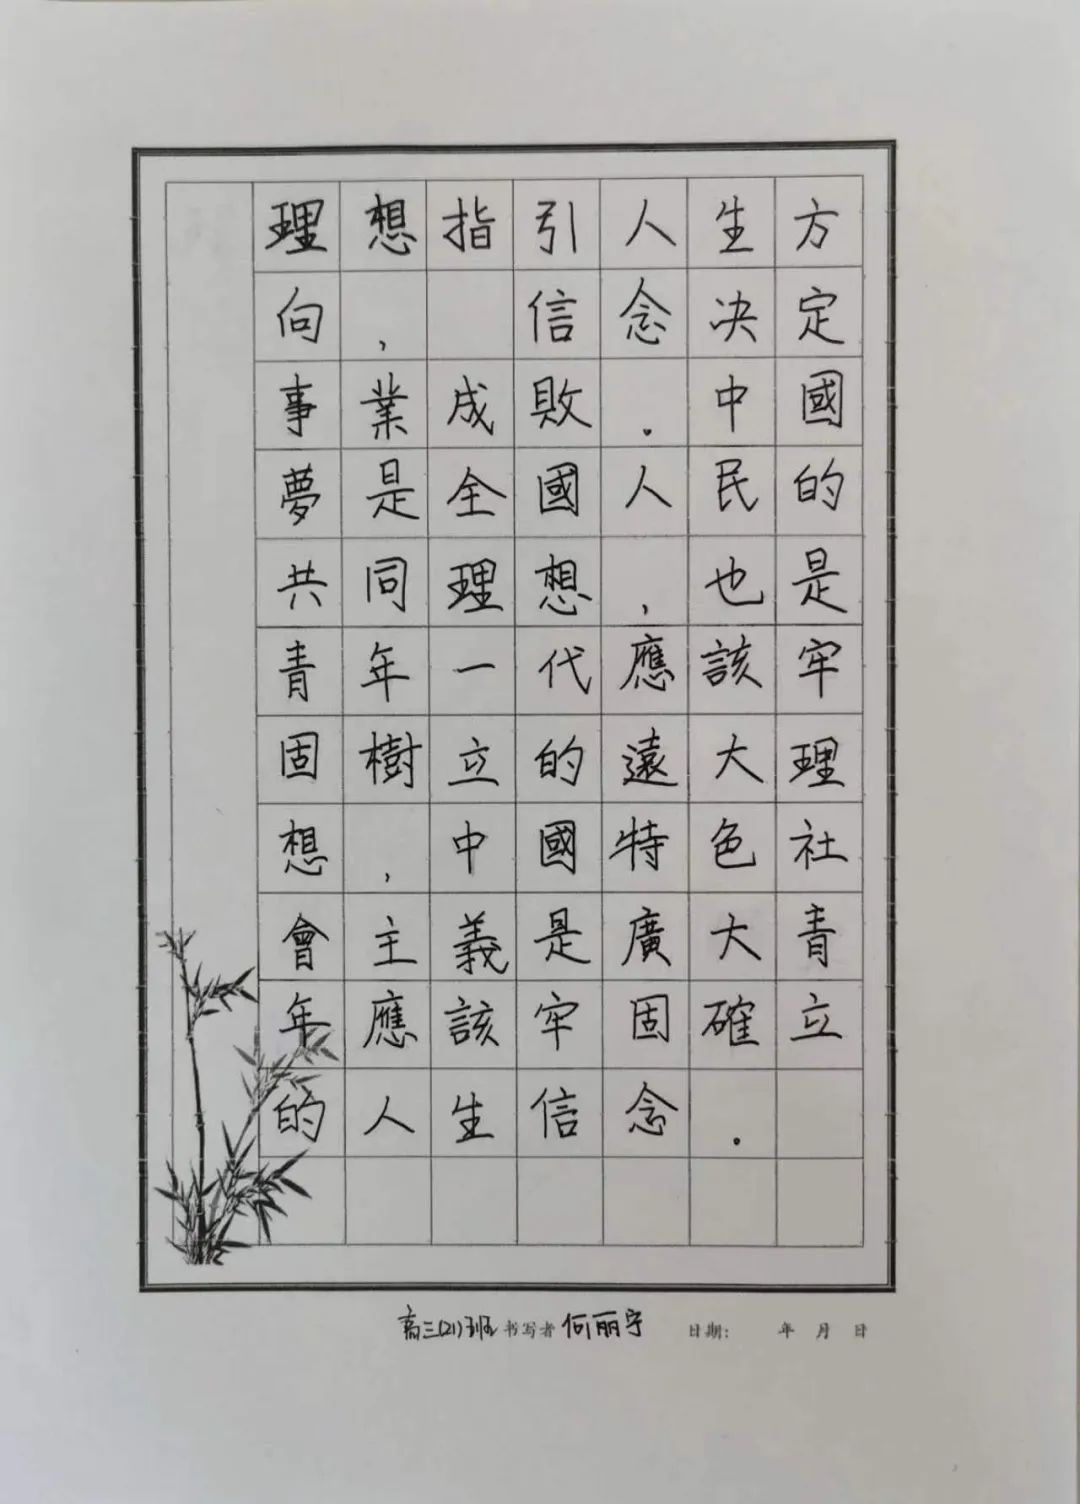 理想指引人生方
向，信念决定
事業成敗．中國
夢是全國人民的
共同理想，也是
青年一代應該牢
固樹立的遠大理
想，中國特色社
會主義是廣大青
年應該牢固確立
的人生信念．
高三(21)班 书写者 何丽宁 日期： 年 月 日